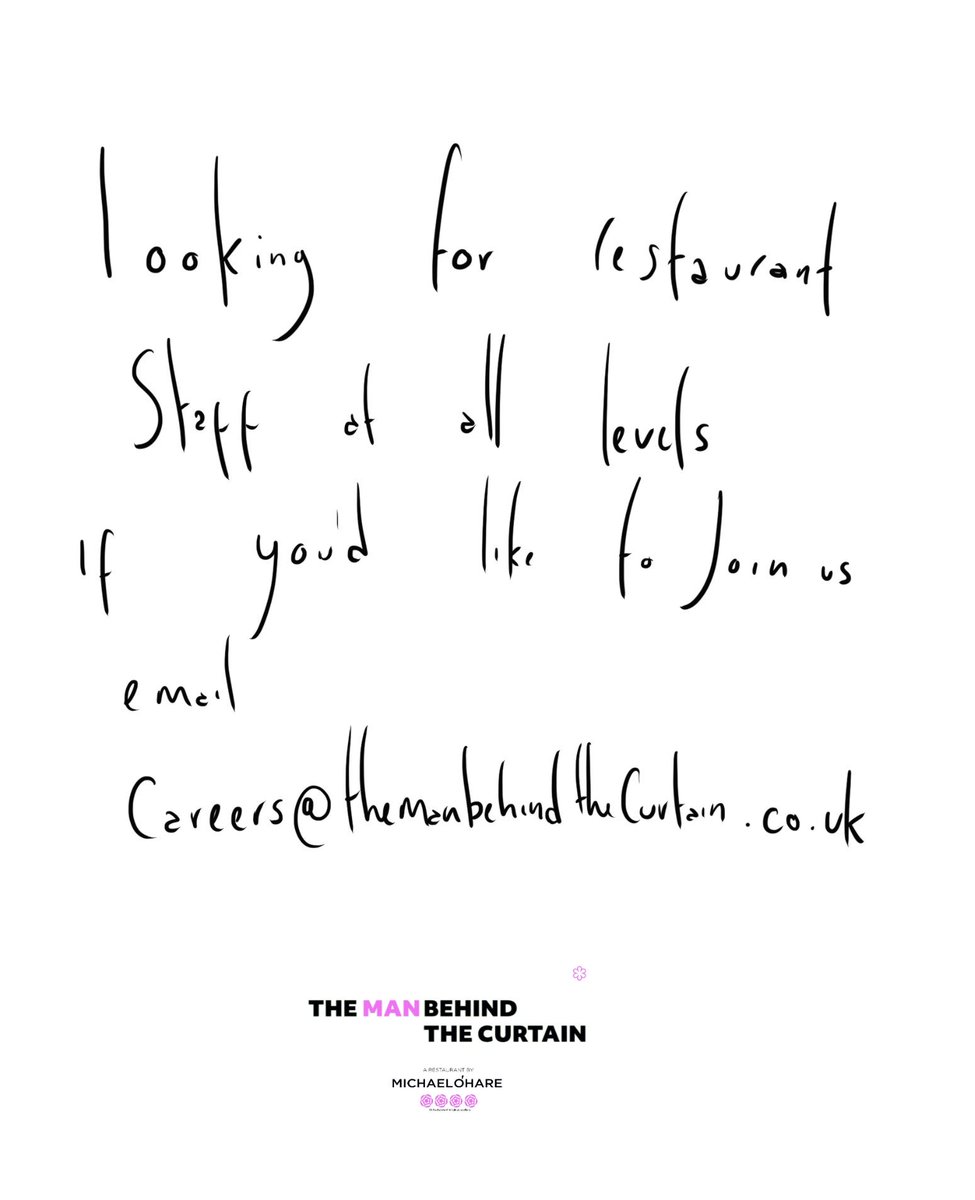 looking for restaurant
Staff at all levels
If you'd like to Join us
email
Careers@themanbehindtheCurtain.co.uk
THE MAN BEHIND
THE CURTAIN
A RESTAURANT BY
MICHAEL O'HARE